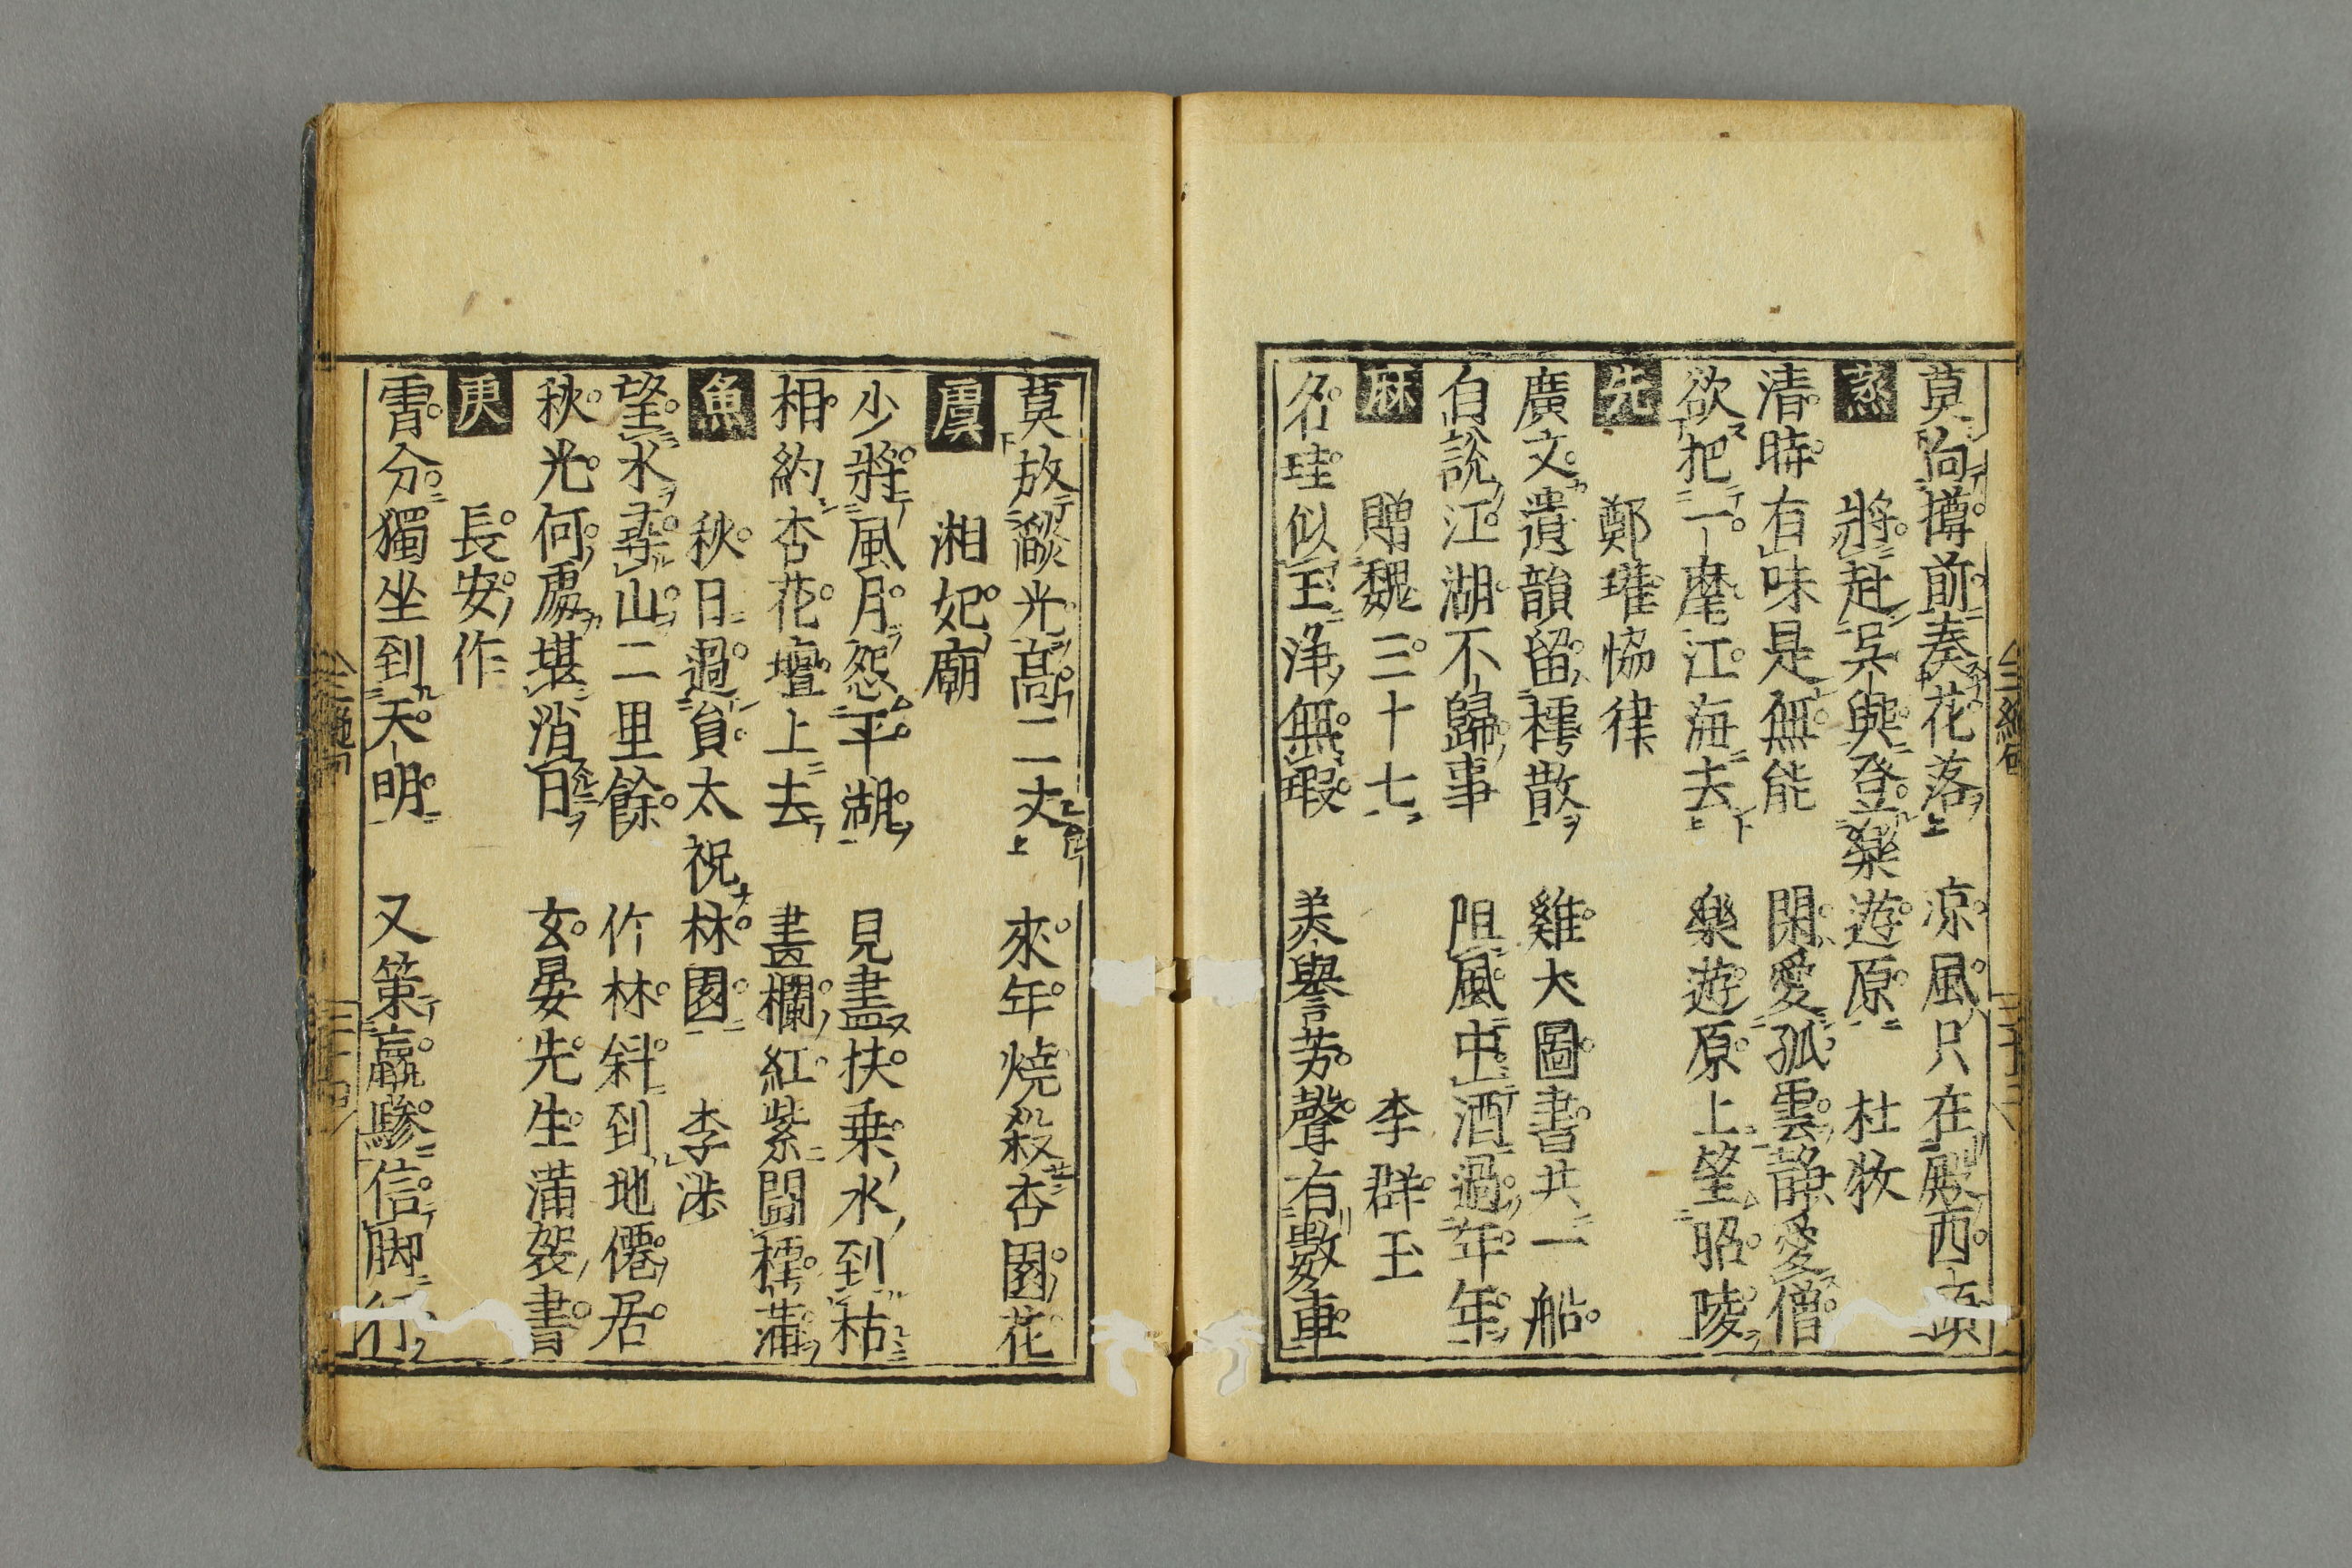 莫向樽前奏花落 凉風只在殿西頭
蒸 將赴吳興登樂遊原 杜牧
清時有味是無能 閑愛孤雲静愛僧
欲把一麾江海去 樂遊原上望昭陵
先 鄭瓘恊律
廣文遺韻留樗散 雞犬圖書共一船
自說江湖不歸事 阻風中酒過年年
麻 贈魏三十七 李群玉
名珪似玉浄無瑕 美譽芳聲有數車
莫放燄光高二丈 來年燒殺杏園花
虞 湘妃廟
少將風月怨平湖 見盡扶乗水到枯
相約杏花壇上去 畫欄紅紫鬪樗蒲
魚 秋日過員太祝林園 李涉
望水尋山二里餘 竹林斜到地僊居
秋光何處堪消日 玄晏先生滿架書
庚 長安作
霄分獨坐到天明 又策羸驂信脚行